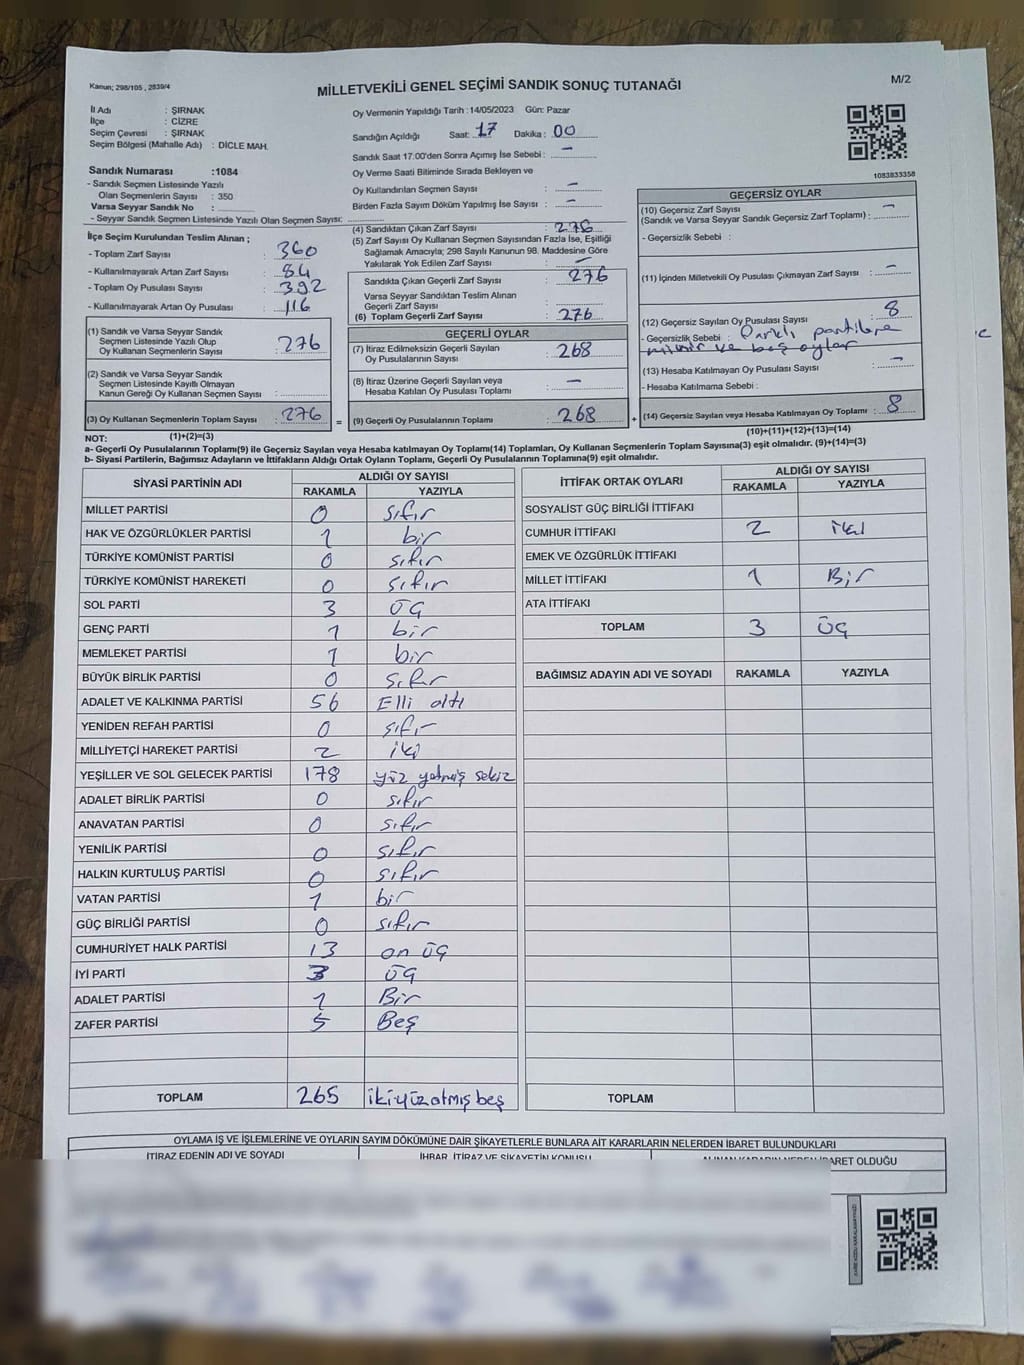 Kanun; 298/105 , 2839/4
MİLLETVEKİLİ GENEL SEÇİMİ SANDIK SONUÇ TUTANAĞI
M/2
İl Adı : ŞIRNAK
İlçe : CİZRE
Seçim Çevresi : ŞIRNAK
Seçim Bölgesi (Mahalle Adı) : DİCLE MAH.
Sandık Numarası :1084
- Sandık Seçmen Listesinde Yazılı
Olan Seçmenlerin Sayısı : 350
Varsa Seyyar Sandık No :
- Seyyar Sandık Seçmen Listesinde Yazılı Olan Seçmen Sayısı:
Oy Vermenin Yapıldığı Tarih :14/05/2023 Gün: Pazar
Sandığın Açıldığı Saat: 17 Dakika : 00
Sandık Saat 17:00'den Sonra Açımış İse Sebebi : –
Oy Verme Saati Bitiminde Sırada Bekleyen ve
Oy Kullandırılan Seçmen Sayısı : –
Birden Fazla Sayım Döküm Yapılmış İse Sayısı : –
1083833358
İlçe Seçim Kurulundan Teslim Alınan ;
- Toplam Zarf Sayısı : 360
- Kullanılmayarak Artan Zarf Sayısı : 84
- Toplam Oy Pusulası Sayısı : 392
- Kullanılmayarak Artan Oy Pusulası : 116
(1) Sandık ve Varsa Seyyar Sandık
Seçmen Listesinde Yazılı Olup
Oy Kullanan Seçmenlerin Sayısı : 276
(2) Sandık ve Varsa Seyyar Sandık
Seçmen Listesinde Kayıtlı Olmayan
Kanun Gereği Oy Kullanan Seçmen Sayısı :
(3) Oy Kullanan Seçmenlerin Toplam Sayısı : 276
(4) Sandıktan Çıkan Zarf Sayısı : 276
(5) Zarf Sayısı Oy Kullanan Seçmen Sayısından Fazla İse, Eşitliği
Sağlamak Amacıyla; 298 Sayılı Kanunun 98. Maddesine Göre
Yakılarak Yok Edilen Zarf Sayısı : –
Sandıkta Çıkan Geçerli Zarf Sayısı : 276
Varsa Seyyar Sandıktan Teslim Alınan
Geçerli Zarf Sayısı :
(6) Toplam Geçerli Zarf Sayısı : 276
GEÇERLİ OYLAR
(7) İtiraz Edilmeksizin Geçerli Sayılan
Oy Pusulalarının Sayısı : 268
(8) İtiraz Üzerine Geçerli Sayılan veya
Hesaba Katılan Oy Pusulası Toplamı : –
= (9) Geçerli Oy Pusulalarının Toplamı : 268 +
GEÇERSİZ OYLAR
(10) Geçersiz Zarf Sayısı
(Sandık ve Varsa Seyyar Sandık Geçersiz Zarf Toplamı) : –
- Geçersizlik Sebebi :
(11) İçinden Milletvekili Oy Pusulası Çıkmayan Zarf Sayısı : –
(12) Geçersiz Sayılan Oy Pusulası Sayısı : 8
- Geçersizlik Sebebi : Farklı partilere
mühür ve boş oylar
(13) Hesaba Katılmayan Oy Pusulası Sayısı : –
- Hesaba Katılmama Sebebi :
(14) Geçersiz Sayılan veya Hesaba Katılmayan Oy Toplamı : 8
NOT: (1)+(2)=(3)
(10)+(11)+(12)+(13)=(14)
a- Geçerli Oy Pusulalarının Toplamı(9) ile Geçersiz Sayılan veya Hesaba katılmayan Oy Toplamı(14) Toplamları, Oy Kullanan Seçmenlerin Toplam Sayısına(3) eşit olmalıdır. (9)+(14)=(3)
b- Siyasi Partilerin, Bağımsız Adayların ve İttifakların Aldığı Ortak Oyların Toplamı, Geçerli Oy Pusulalarının Toplamına(9) eşit olmalıdır.
SİYASİ PARTİNİN ADI ALDIĞI OY SAYISI
RAKAMLA YAZIYLA
MİLLET PARTİSİ 0 sıfır
HAK VE ÖZGÜRLÜKLER PARTİSİ 1 bir
TÜRKİYE KOMÜNİST PARTİSİ 0 sıfır
TÜRKİYE KOMÜNİST HAREKETİ 0 sıfır
SOL PARTİ 3 üç
GENÇ PARTİ 1 bir
MEMLEKET PARTİSİ 1 bir
BÜYÜK BİRLİK PARTİSİ 0 sıfır
ADALET VE KALKINMA PARTİSİ 56 Elli altı
YENİDEN REFAH PARTİSİ 0 sıfır
MİLLİYETÇİ HAREKET PARTİSİ 2 iki
YEŞİLLER VE SOL GELECEK PARTİSİ 178 yüz yetmiş sekiz
ADALET BİRLİK PARTİSİ 0 sıfır
ANAVATAN PARTİSİ 0 sıfır
YENİLİK PARTİSİ 0 sıfır
HALKIN KURTULUŞ PARTİSİ 0 sıfır
VATAN PARTİSİ 1 bir
GÜÇ BİRLİĞİ PARTİSİ 0 sıfır
CUMHURİYET HALK PARTİSİ 13 on üç
İYİ PARTİ 3 üç
ADALET PARTİSİ 1 Bir
ZAFER PARTİSİ 5 Beş
TOPLAM 265 ikiyüzatmış beş
İTTİFAK ORTAK OYLARI ALDIĞI OY SAYISI
RAKAMLA YAZIYLA
SOSYALİST GÜÇ BİRLİĞİ İTTİFAKI
CUMHUR İTTİFAKI 2 iki
EMEK VE ÖZGÜRLÜK İTTİFAKI
MİLLET İTTİFAKI 1 Bir
ATA İTTİFAKI
TOPLAM 3 üç
BAĞIMSIZ ADAYIN ADI VE SOYADI RAKAMLA YAZIYLA
TOPLAM
OYLAMA İŞ VE İŞLEMLERİNE VE OYLARIN SAYIM DÖKÜMÜNE DAİR ŞİKAYETLERLE BUNLARA AİT KARARLARIN NELERDEN İBARET BULUNDUKLARI
İTİRAZ EDENİN ADI VE SOYADI İHBAR, İTİRAZ VE ŞİKAYETİN KONUSU ALINAN KARARIN NEDEN İBARET OLDUĞU